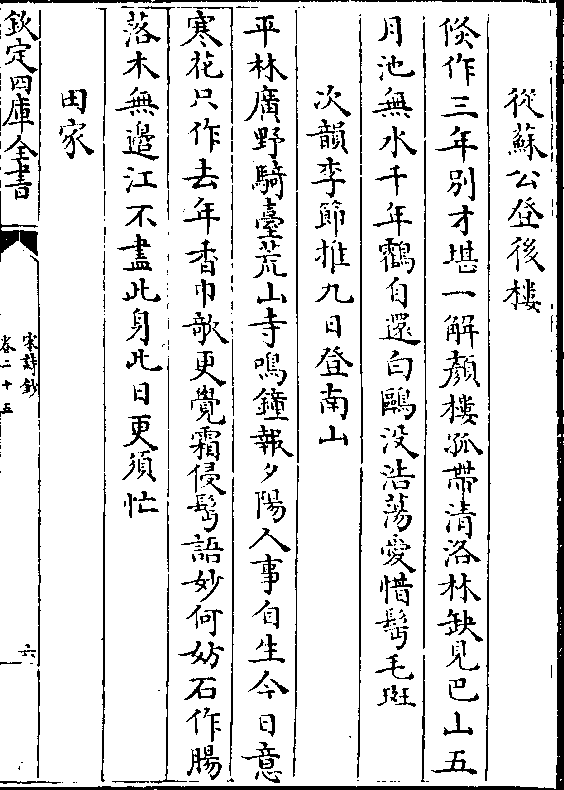 從蘇公登後樓
倐作三年別才堪一解顔樓孤帶清洛林缺見巴山五
月池無水千年鸖自還白鷗没浩蕩愛惜髩毛斑
次韻李節推九日登南山
平林廣野騎臺荒山寺鳴鐘報夕陽人事自生今日意
寒花只作去年香巾欹更覺霜侵髩語妙何妨石作腸
落木無邉江不盡此身此日更須忙
田家
欽定四庫全書
宋詩鈔
卷二十五
六